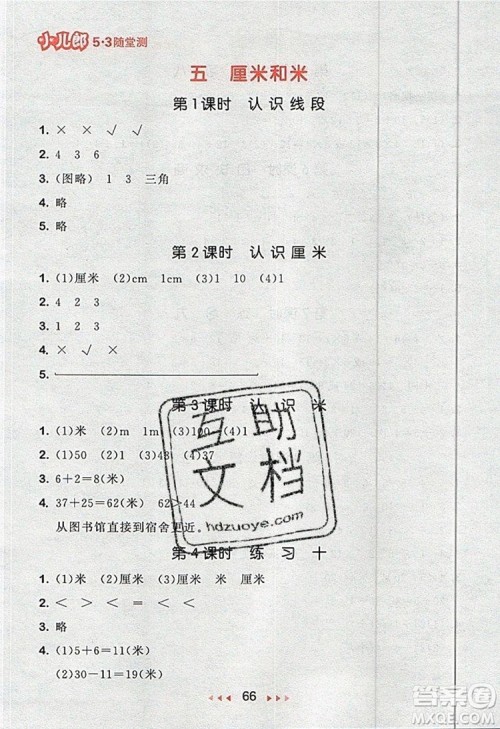 小儿郎 5·3随堂测
五 厘米和米
第1课时 认识线段
1. × × √ √
2. 4 3 6
3. (图略) 1 3 三角
4. 略
5. 略
第2课时 认识厘米
1. (1)厘米 (2)cm 1cm (3)1 10 (4)1
2. 略
3. 4 2 3
4. × √ ×
5.
第3课时 认识米
1. (1)米 (2)m 1m (3)100 (4)1
2. (1)50 (2)1 (3)48 (4)37
3. 6+2=8(米)
4. 37+25=62(米) 62>44
从图书馆直接到宿舍更近。
第4课时 练习十
1. (1)米 (2)厘米 (3)厘米 米 厘米
2. < > < < =
3. 略
4. (1)5+6=11(米)
(2)30-11=19(米)
66
互助文档
hdzuoye.com
答案圈
MXQE.COM